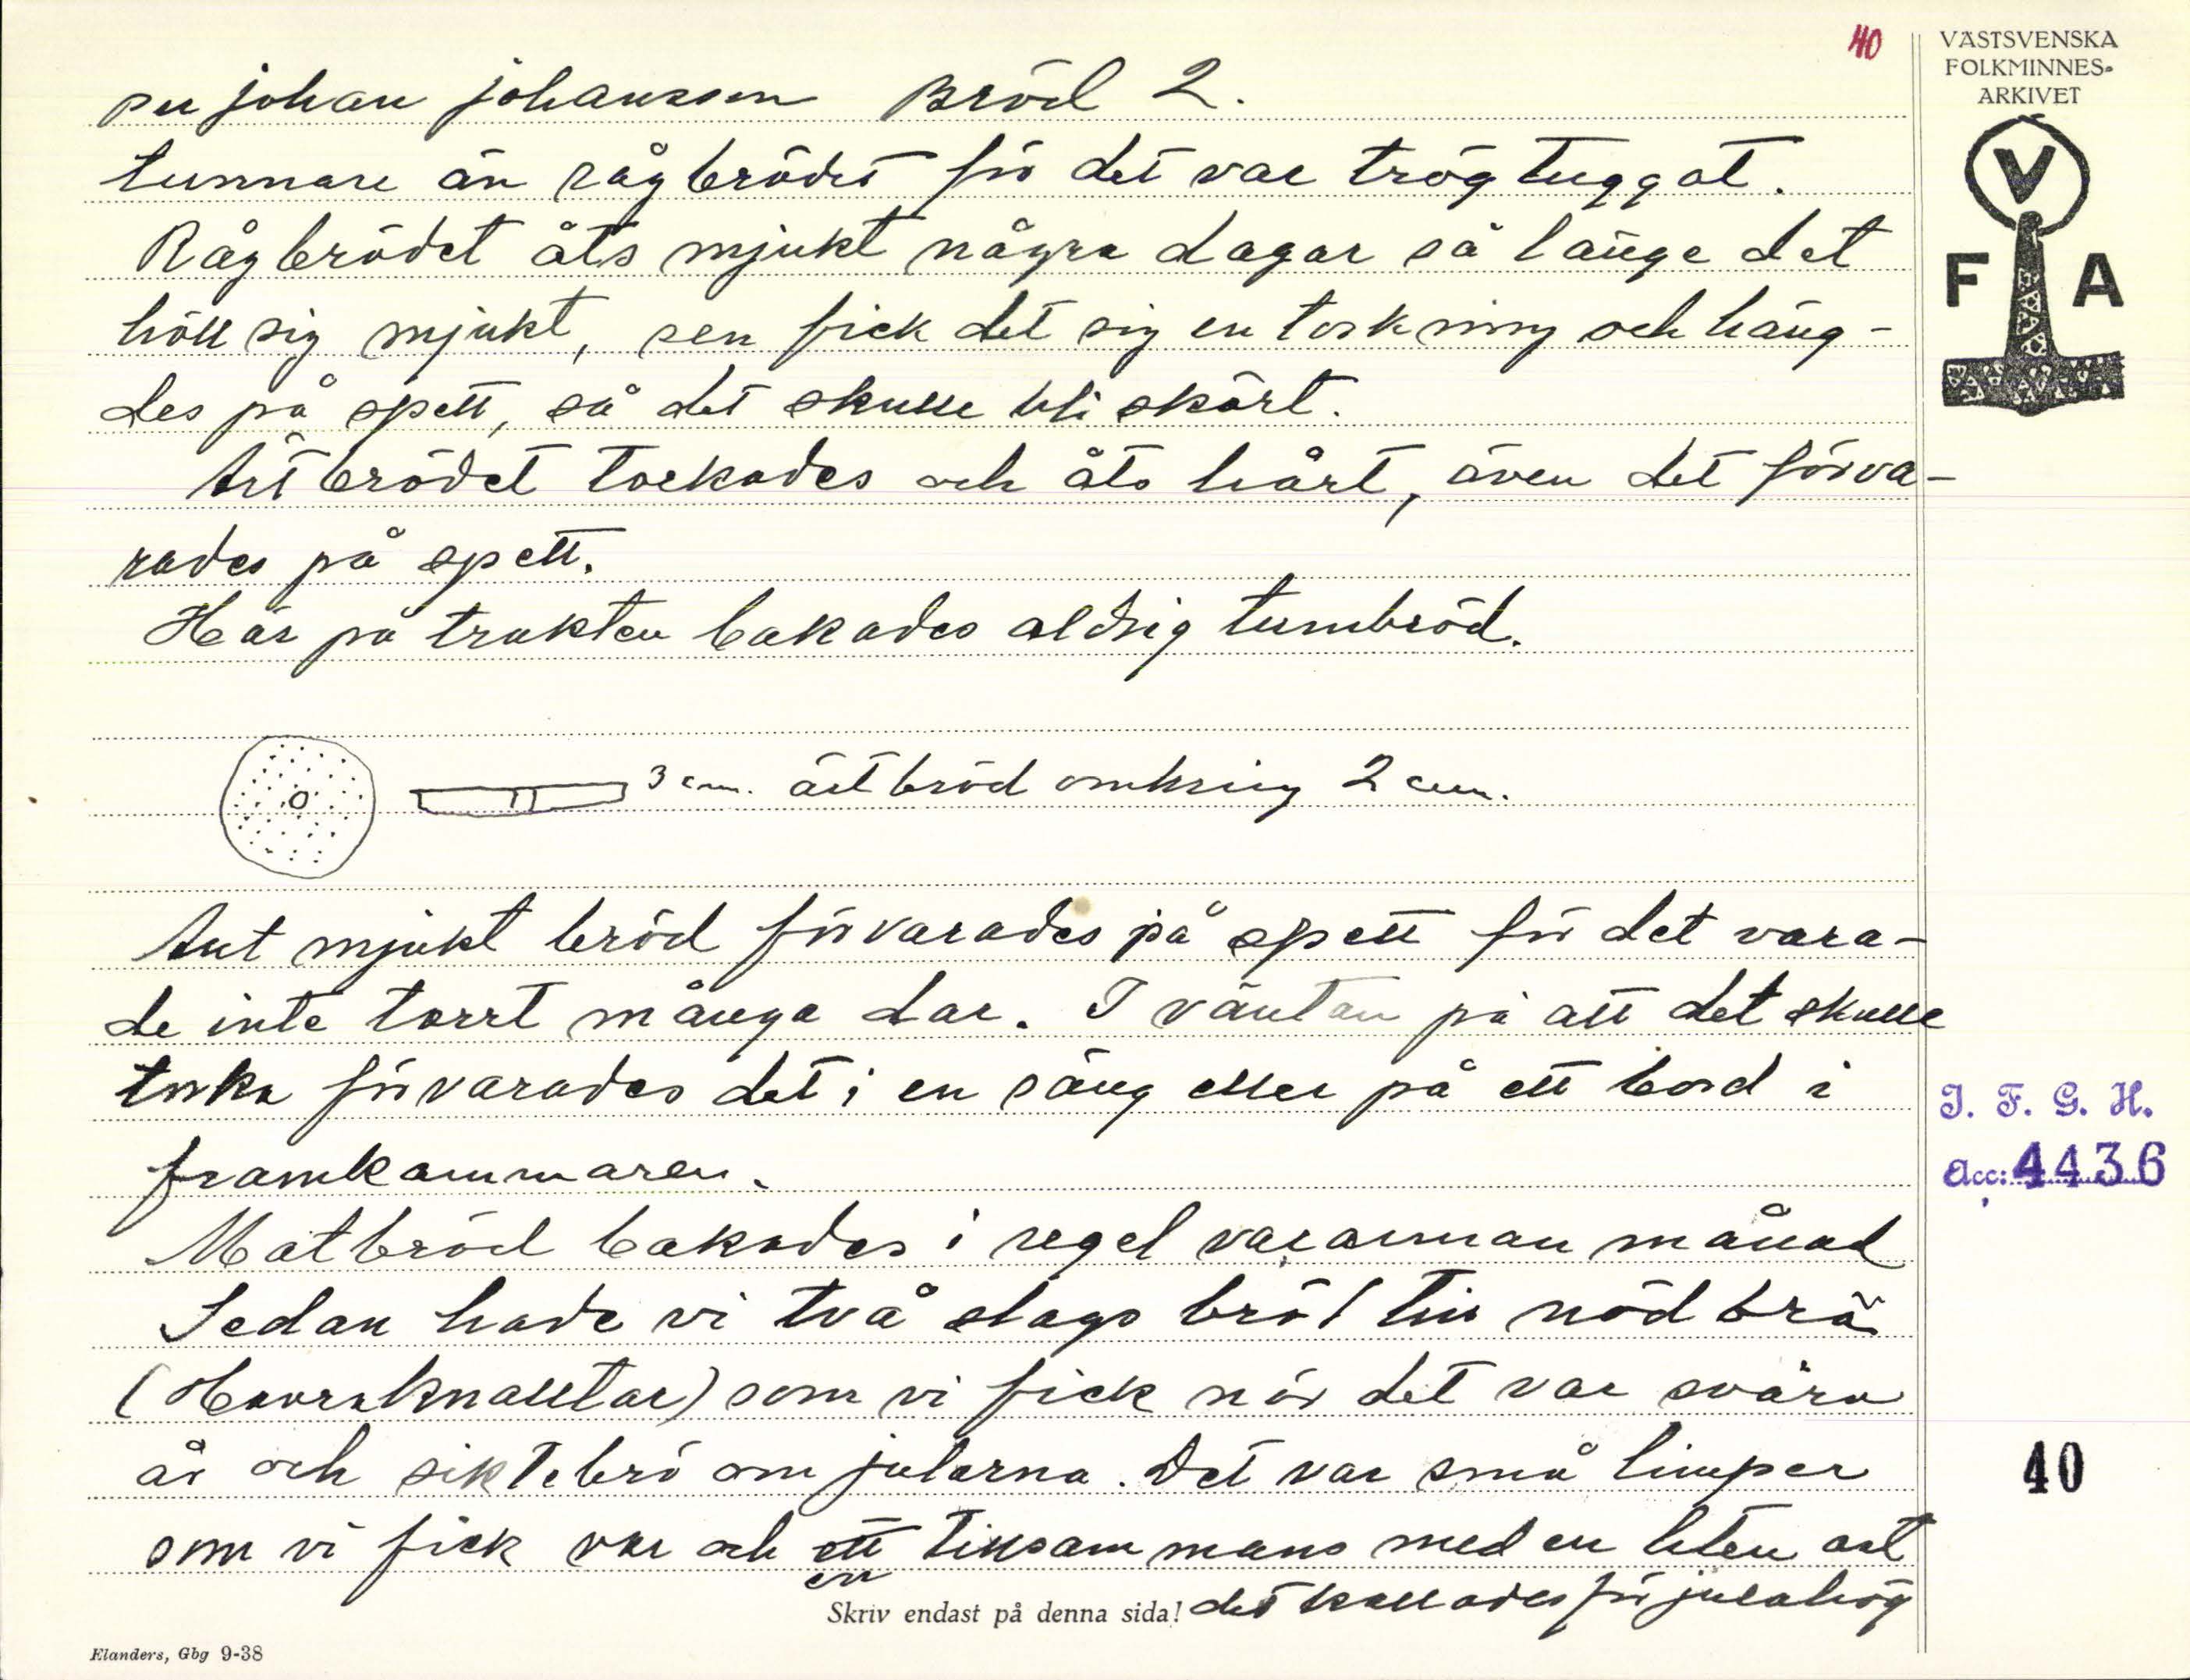 40
VÄSTSVENSKA
FOLKMINNES-
ARKIVET
V
F A
per johan johansson Bröd 2.
tunnare än rågbrödet för det var trögtuggat.
Rågbrödet åts mjukt några dagar så länge det
höll sig mjukt, sen fick det sig en torkning och häng-
des på spett, så det skulle bli skört.
Ärtbrödet torkades och åts hårt, även det förva-
rades på spett.
Här på trakten bakades aldrig tunnbröd.
3 cm. ärtbröd omkring 2 cm.
Aut mjukt bröd förvarades på spett för det vara-
de inte torrt många dar. I väntan på att det skulle
torka förvarades det i en säng eller på ett bord i
framkammaren.
Matbröd bakades i regel varannan månad
Sedan hade vi två slags bröd till nödbrö
(Havraknalltar) som vi fick när det var svåra
år och siktebrö om jularna. Det var små limper
som vi fick var och ett tillsammans med en liten ost
en
det kallades för julahög
Skriv endast på denna sida!
J. F. G. H.
Acc: 4436
40
Elanders, Gbg 9-38